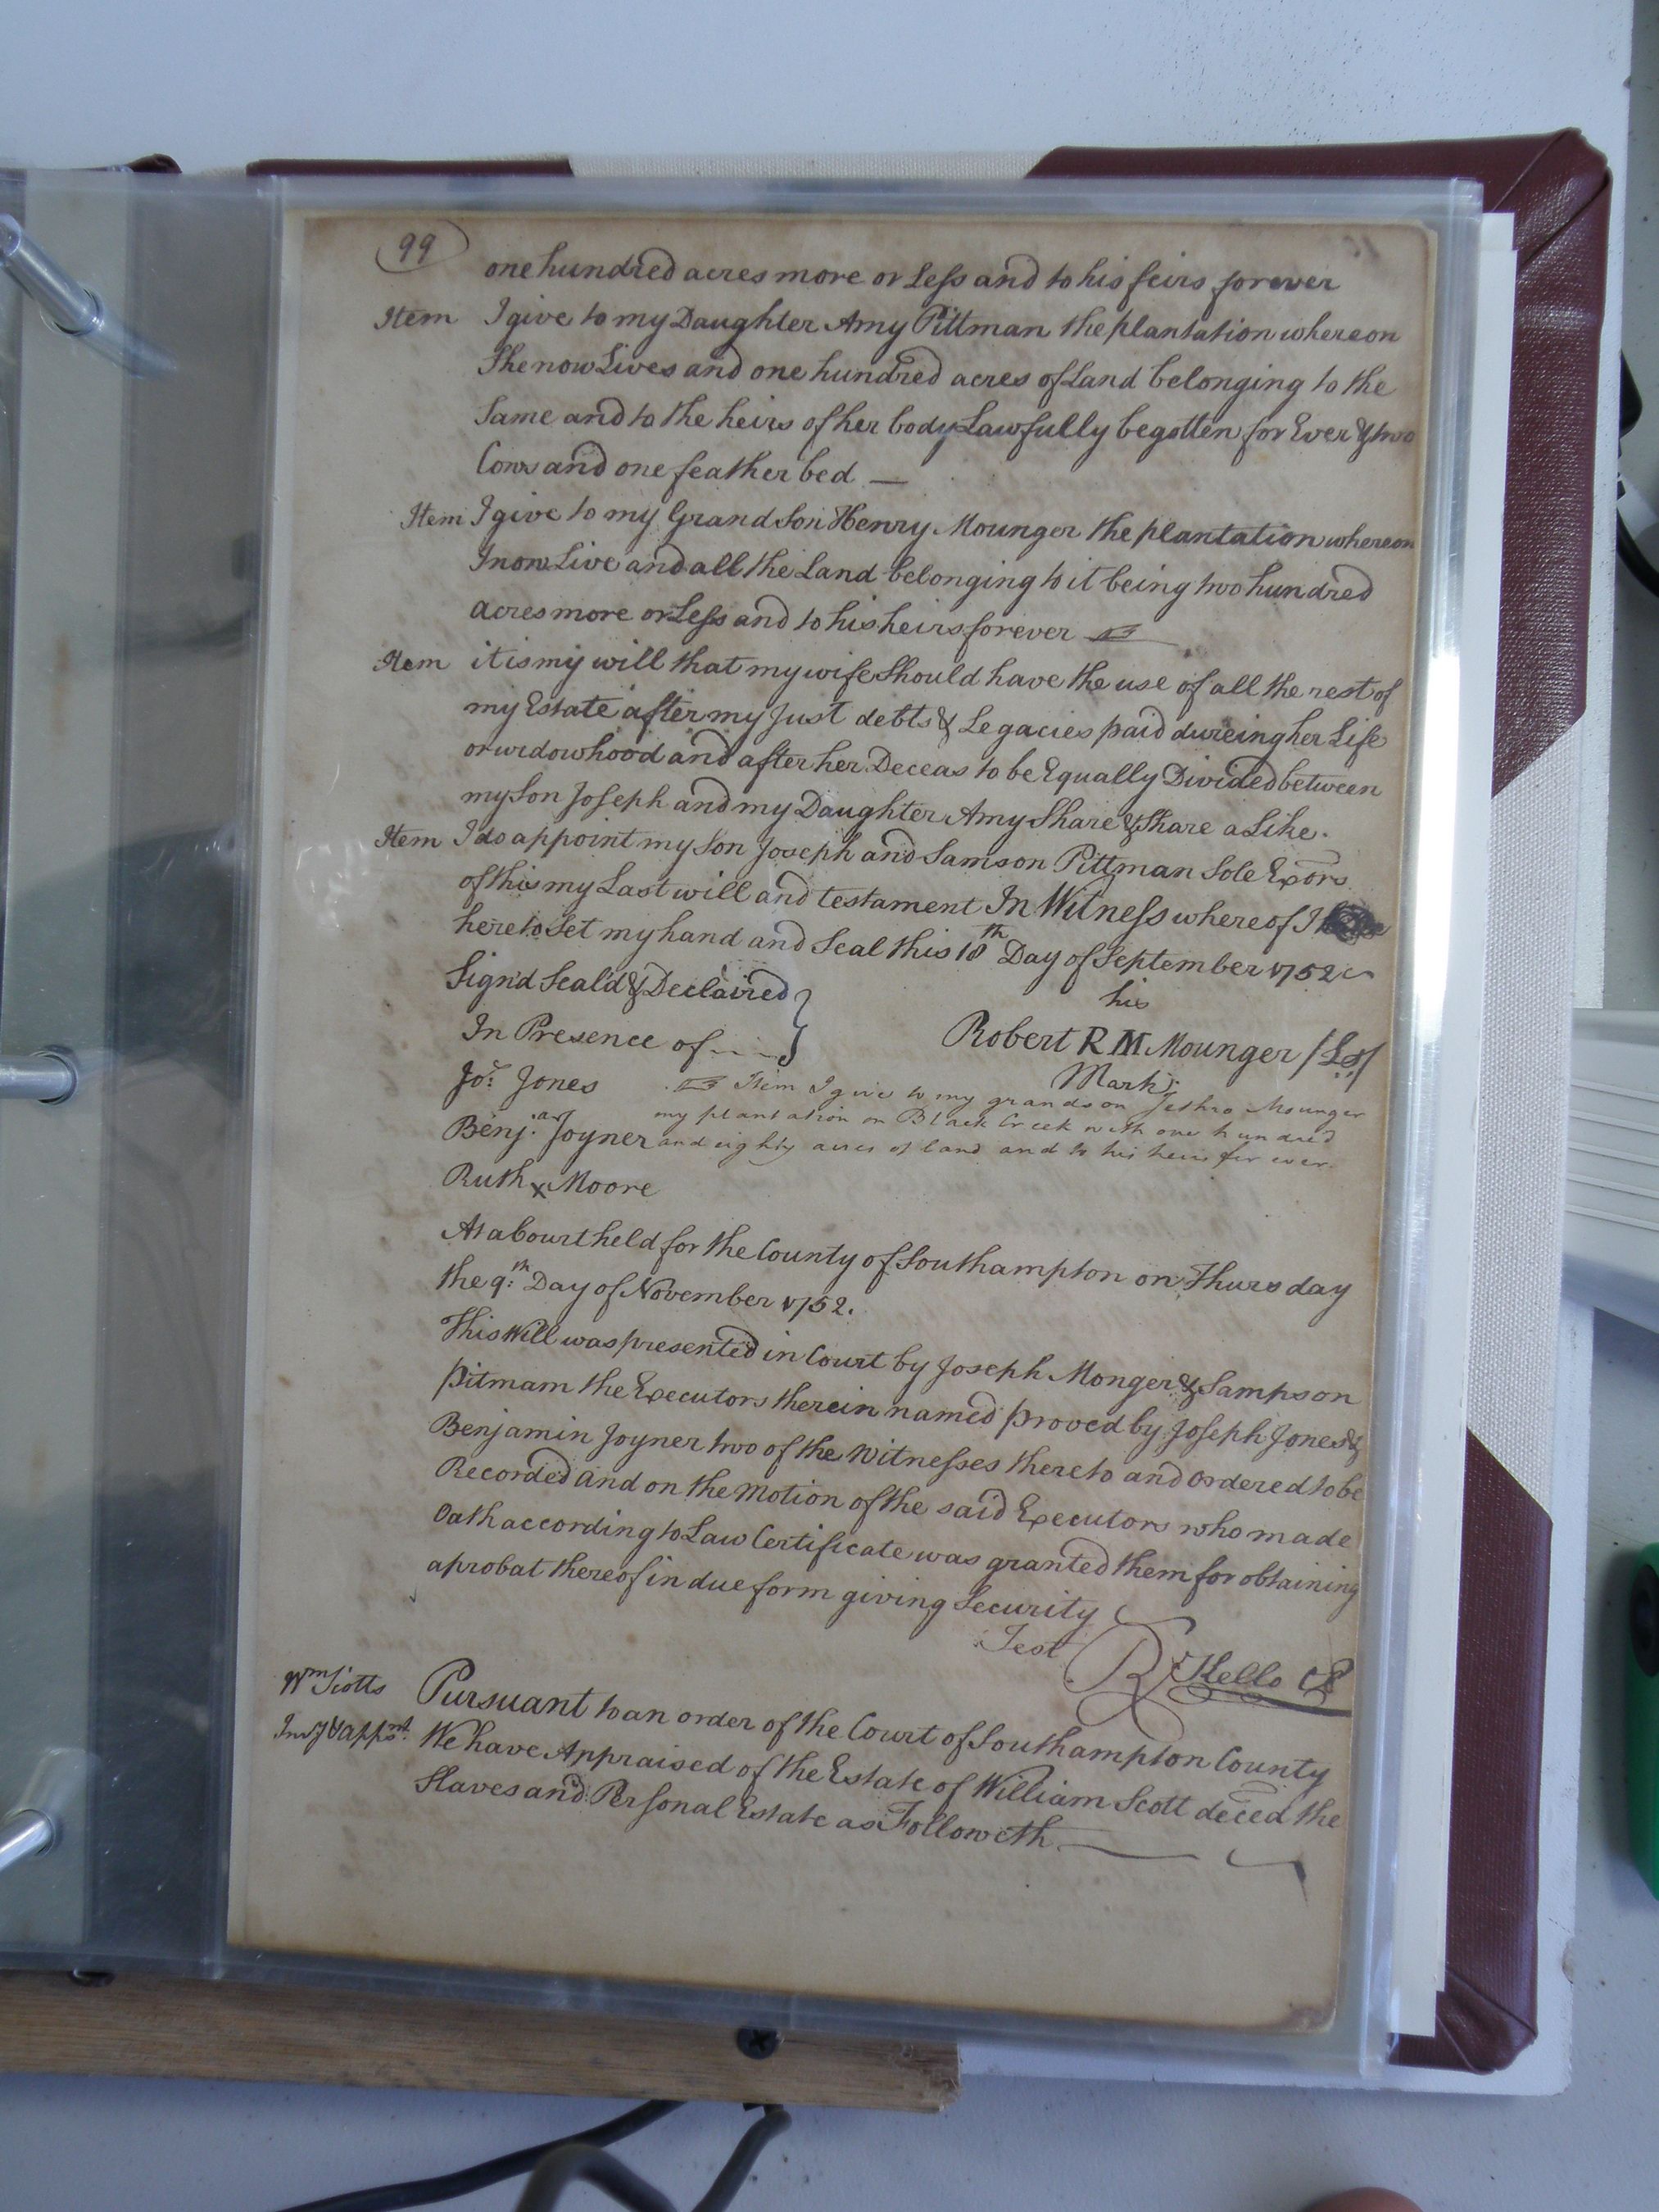 99
one hundred acres more or Less and to his heirs forever
Item I give to my Daughter Amy Pittman the plantation whereon
She now Lives and one hundred acres of Land belonging to the
Same and to the heirs of her body Lawfully begotten for Ever & two
Cows and one feather bed —
Item I give to my Grand Son Henry Mounger the plantation whereon
I now Live and all the Land belonging to it being two hundred
acres more or Less and to his heirs forever
Item it is my will that my wife Should have the use of all the rest of
my Estate after my Just debts & Legacies paid dureing her Life
or widowhood and after her Deceas to be Equally Divided between
my Son Joseph and my Daughter Amy Share & Share a Like.
Item I do appoint my Son Joseph and Samson Pittman Sole Exors
of this my Last will and testament In Witness whereof I
hereto Set my hand and Seal this 18th Day of September 1752
Sign'd Seal'd & Declaired
In Presence of
his
Robert R M Mounger / Ls /
Mark
Jos: Jones
Benj.an Joyner
Ruth x Moore
Item I give to my grandson Jethro Mounger
my plantation on Black Creek with one hundred
and eighty acres of land and to his heirs for ever.
At a Court held for the County of Southampton on Thursday
the 9th: Day of November 1752.
This Will was presented in Court by Joseph Monger & Sampson
Pitmam the Executors therein named proved by Joseph Jones &
Benjamin Joyner two of the Witnesses thereto and ordered to be
Recorded and on the Motion of the said Executors who made
Oath according to Law Certificate was granted them for obtaining
a probat thereof in due form giving Security
Test R Kello CC
Wm Scotts
Invy & Appmt.
Pursuant to an order of the Court of Southampton County
We have Appraised of the Estate of William Scott deced the
Slaves and Personal Estate as Followeth